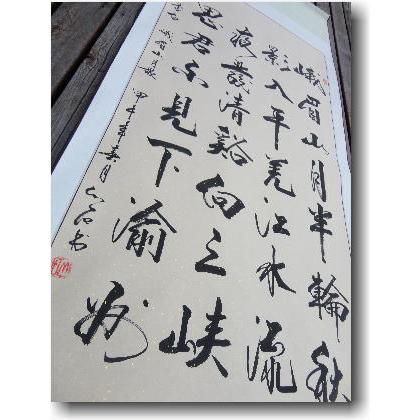 峨眉山月半輪秋
影入平羌江水流
夜發清谿向三峡
思君不見下渝州
甲午年
月
書